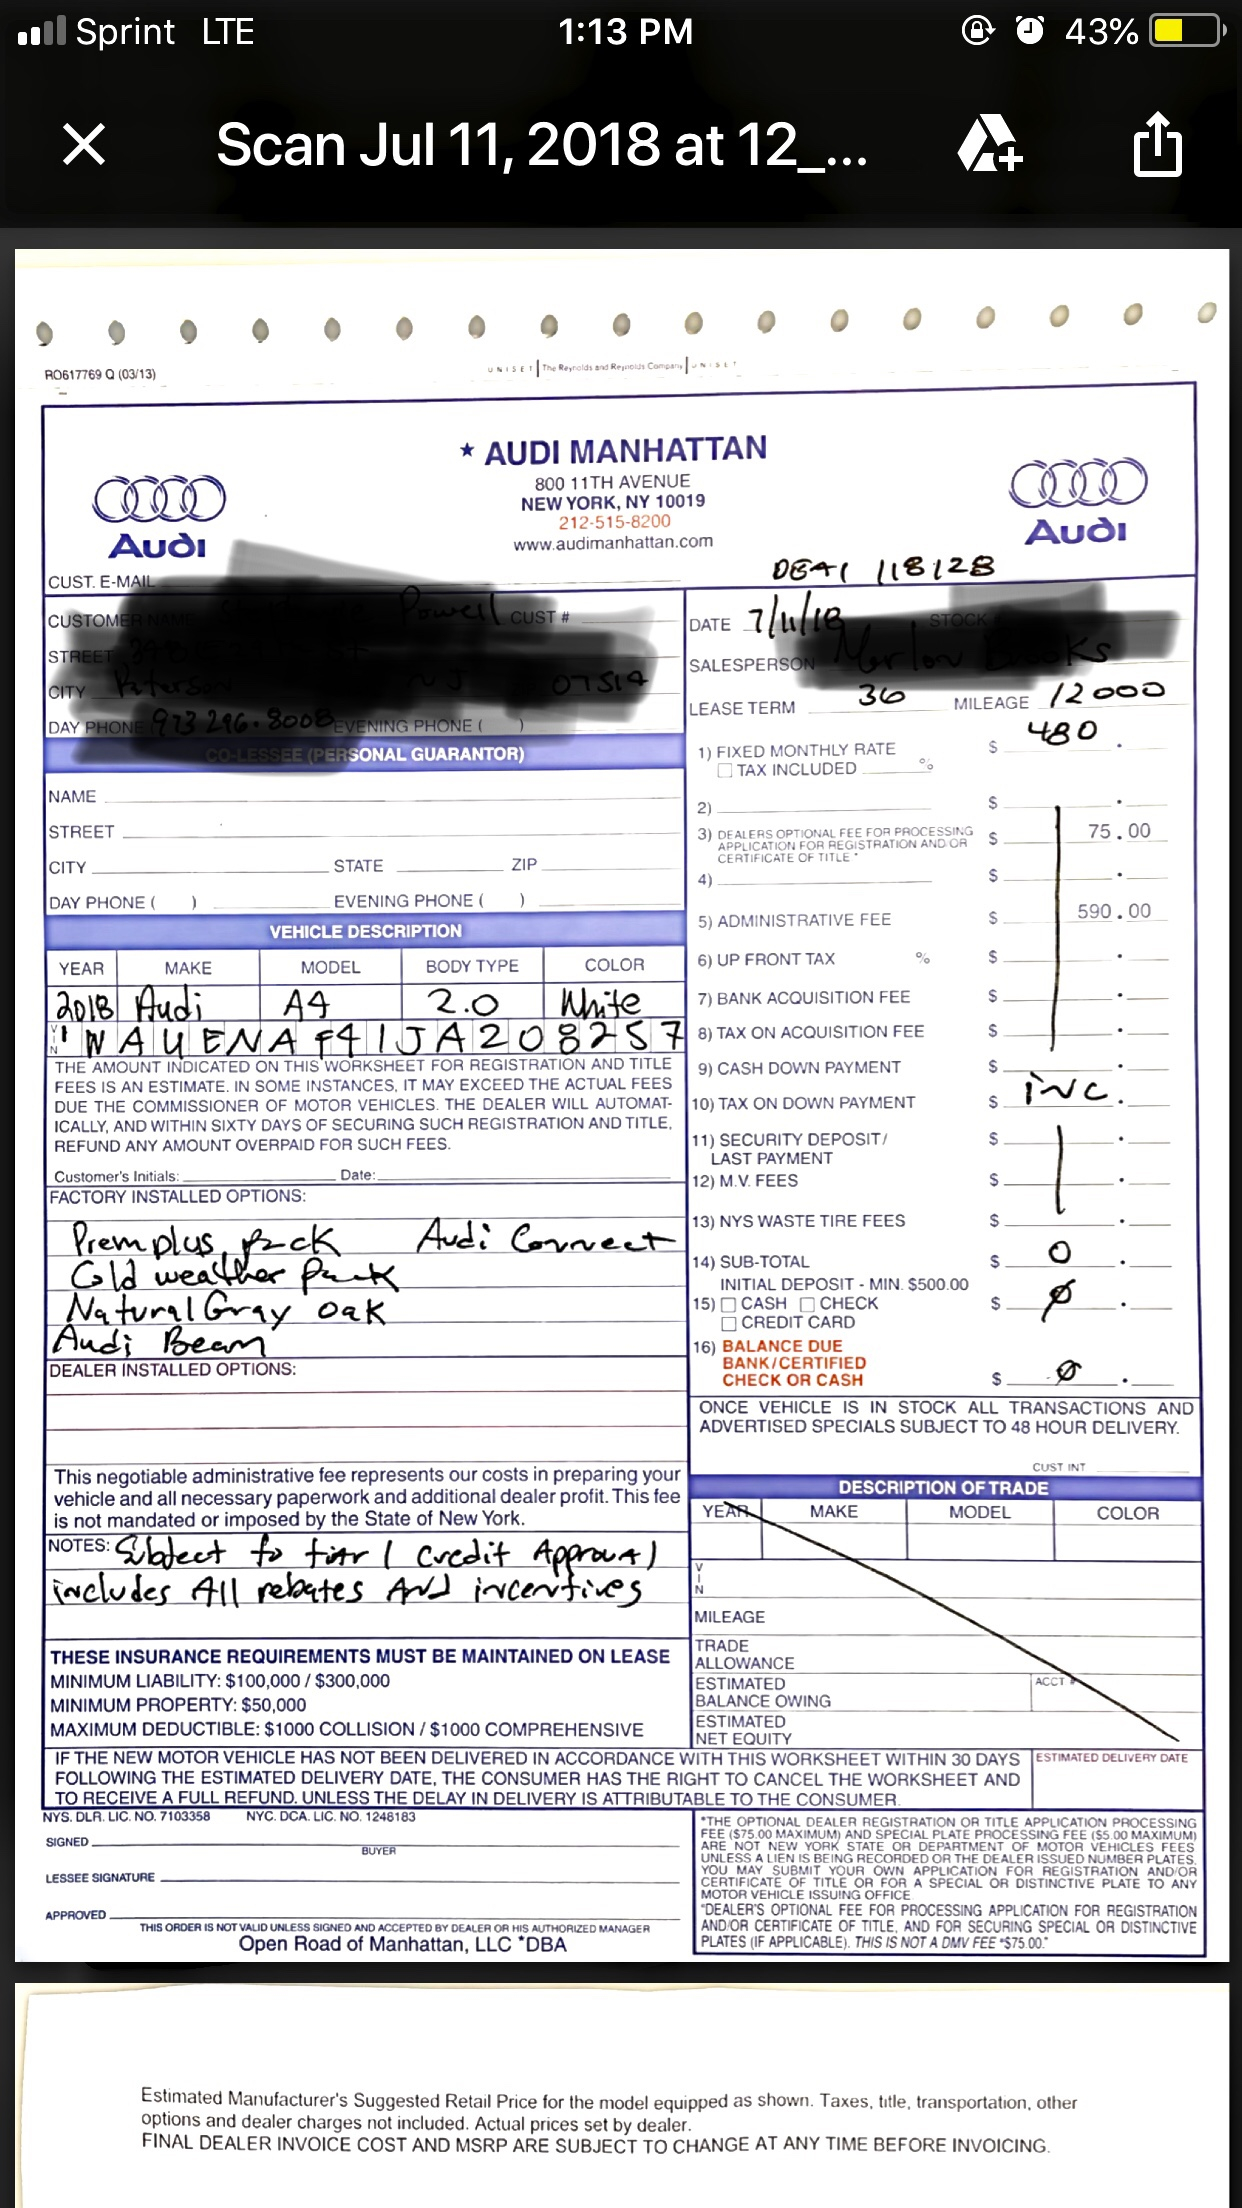 Sprint LTE 1:13 PM 43%
Scan Jul 11, 2018 at 12_...
RO617769 Q (03/13)
UNISET The Reynolds and Reynolds Company UNISET
★ AUDI MANHATTAN
800 11TH AVENUE
NEW YORK, NY 10019
212-515-8200
www.audimanhattan.com
Audi
Audi
DEAL 118128
CUST. E-MAIL
CUSTOMER NAME CUST #
STREET
CITY
DAY PHONE EVENING PHONE ( )
CO-LESSEE (PERSONAL GUARANTOR)
NAME
STREET
CITY STATE ZIP
DAY PHONE ( ) EVENING PHONE ( )
VEHICLE DESCRIPTION
YEAR MAKE MODEL BODY TYPE COLOR
2018 Audi A4 2.0 White
VIN WAUENAF41JA208257
THE AMOUNT INDICATED ON THIS WORKSHEET FOR REGISTRATION AND TITLE
FEES IS AN ESTIMATE. IN SOME INSTANCES, IT MAY EXCEED THE ACTUAL FEES
DUE THE COMMISSIONER OF MOTOR VEHICLES. THE DEALER WILL AUTOMAT-
ICALLY, AND WITHIN SIXTY DAYS OF SECURING SUCH REGISTRATION AND TITLE,
REFUND ANY AMOUNT OVERPAID FOR SUCH FEES.
Customer's Initials: Date:
FACTORY INSTALLED OPTIONS:
Prem plus pack Audi Connect
Cold weather pack
Natural Gray oak
Audi Beam
DEALER INSTALLED OPTIONS:
This negotiable administrative fee represents our costs in preparing your
vehicle and all necessary paperwork and additional dealer profit. This fee
is not mandated or imposed by the State of New York.
NOTES: Subject to tier 1 credit Approval
includes All rebates And incentives
THESE INSURANCE REQUIREMENTS MUST BE MAINTAINED ON LEASE
MINIMUM LIABILITY: $100,000 / $300,000
MINIMUM PROPERTY: $50,000
MAXIMUM DEDUCTIBLE: $1000 COLLISION / $1000 COMPREHENSIVE
DATE 7/11/18 STOCK
SALESPERSON
LEASE TERM 36 MILEAGE 12000
1) FIXED MONTHLY RATE $ 480 .
TAX INCLUDED %
2) $ .
3) DEALERS OPTIONAL FEE FOR PROCESSING $ 75.00
APPLICATION FOR REGISTRATION AND/OR
CERTIFICATE OF TITLE *
4) $ .
5) ADMINISTRATIVE FEE $ 590.00
6) UP FRONT TAX % $ .
7) BANK ACQUISITION FEE $ .
8) TAX ON ACQUISITION FEE $ .
9) CASH DOWN PAYMENT $
10) TAX ON DOWN PAYMENT $ inc .
11) SECURITY DEPOSIT/ $ .
LAST PAYMENT
12) M.V. FEES $ .
13) NYS WASTE TIRE FEES $ .
14) SUB-TOTAL $ 0 .
INITIAL DEPOSIT - MIN. $500.00
15) CASH CHECK $ Ø .
CREDIT CARD
16) BALANCE DUE
BANK/CERTIFIED
CHECK OR CASH $ Ø .
ONCE VEHICLE IS IN STOCK ALL TRANSACTIONS AND
ADVERTISED SPECIALS SUBJECT TO 48 HOUR DELIVERY.
CUST INT
DESCRIPTION OF TRADE
YEAR MAKE MODEL COLOR
VIN
MILEAGE
TRADE
ALLOWANCE
ESTIMATED ACCT #
BALANCE OWING
ESTIMATED
NET EQUITY
IF THE NEW MOTOR VEHICLE HAS NOT BEEN DELIVERED IN ACCORDANCE WITH THIS WORKSHEET WITHIN 30 DAYS
FOLLOWING THE ESTIMATED DELIVERY DATE, THE CONSUMER HAS THE RIGHT TO CANCEL THE WORKSHEET AND
TO RECEIVE A FULL REFUND. UNLESS THE DELAY IN DELIVERY IS ATTRIBUTABLE TO THE CONSUMER.
ESTIMATED DELIVERY DATE
NYS. DLR. LIC. NO. 7103358 NYC. DCA. LIC. NO. 1248183
SIGNED
BUYER
LESSEE SIGNATURE
APPROVED
THIS ORDER IS NOT VALID UNLESS SIGNED AND ACCEPTED BY DEALER OR HIS AUTHORIZED MANAGER
Open Road of Manhattan, LLC *DBA
*THE OPTIONAL DEALER REGISTRATION OR TITLE APPLICATION PROCESSING
FEE ($75.00 MAXIMUM) AND SPECIAL PLATE PROCESSING FEE ($5.00 MAXIMUM)
ARE NOT NEW YORK STATE OR DEPARTMENT OF MOTOR VEHICLES FEES.
UNLESS A LIEN IS BEING RECORDED OR THE DEALER ISSUED NUMBER PLATES,
YOU MAY SUBMIT YOUR OWN APPLICATION FOR REGISTRATION AND/OR
CERTIFICATE OF TITLE OR FOR A SPECIAL OR DISTINCTIVE PLATE TO ANY
MOTOR VEHICLE ISSUING OFFICE.
"DEALER'S OPTIONAL FEE FOR PROCESSING APPLICATION FOR REGISTRATION
AND/OR CERTIFICATE OF TITLE, AND FOR SECURING SPECIAL OR DISTINCTIVE
PLATES (IF APPLICABLE). THIS IS NOT A DMV FEE "$75.00."
Estimated Manufacturer's Suggested Retail Price for the model equipped as shown. Taxes, title, transportation, other
options and dealer charges not included. Actual prices set by dealer.
FINAL DEALER INVOICE COST AND MSRP ARE SUBJECT TO CHANGE AT ANY TIME BEFORE INVOICING.